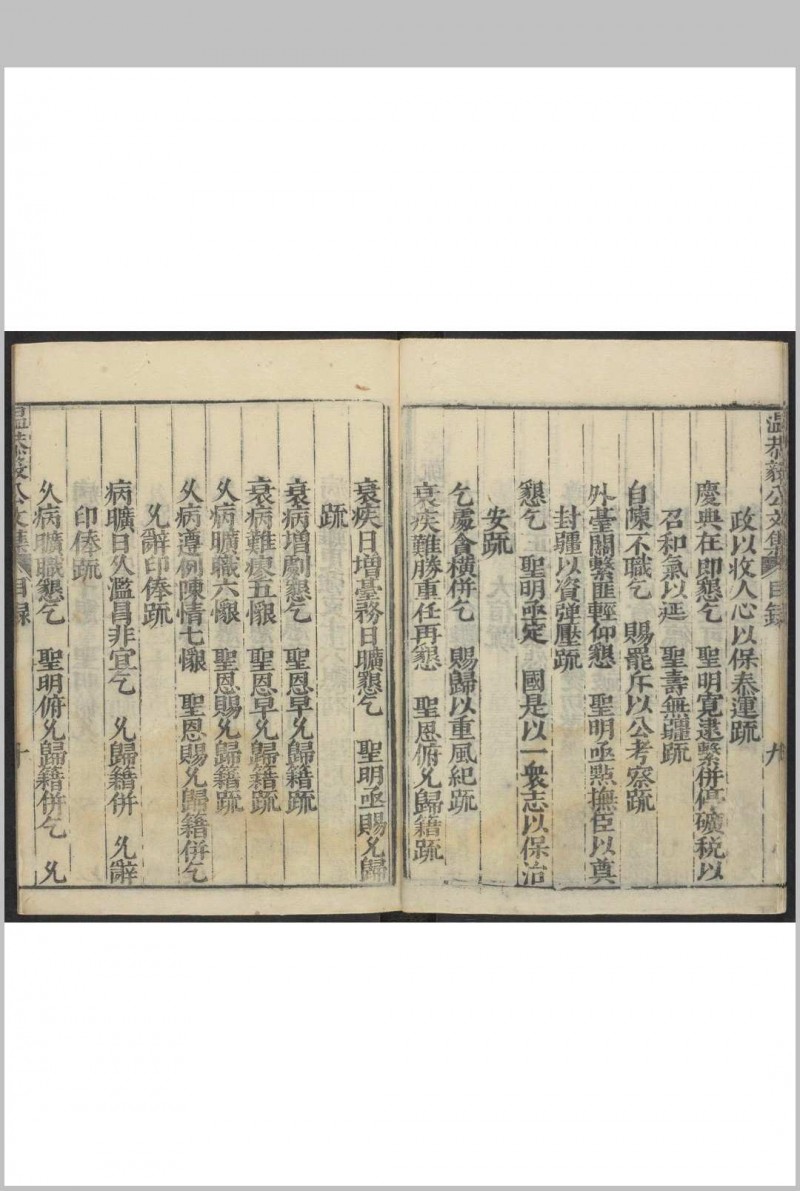 溫恭毅公文集 目錄 九
政以收人心以保泰運疏
慶典在即懇乞 聖明寬逮繫併停礦稅以
召和氣以延 聖壽無疆疏
自陳不職乞 賜罷斥以公考察疏
外臺關繫匪輕仰懇 聖明亟㸃撫臣以奠
封疆以資弹壓疏
懇乞 聖明亟定 國是以一衆志以保治
安疏
乞處貪橫併乞 賜歸以重風紀疏
衰疾難勝重任再懇 聖恩俯允歸籍疏
衰疾日增臺務日曠懇乞 聖明亟賜允歸
疏
衰病增劇懇乞 聖恩早允歸籍疏
衰病難痊五懇 聖恩早允歸籍疏
久病曠職六懇 聖恩賜允歸籍疏
久病遵例陳情七懇 聖恩賜允歸籍併乞
允辭印俸疏
病曠日久濫冒非宜乞 允歸籍併 允辭
印俸疏
久病曠職懇乞 聖明俯允歸籍併乞 允
溫恭毅公文集 目錄 十